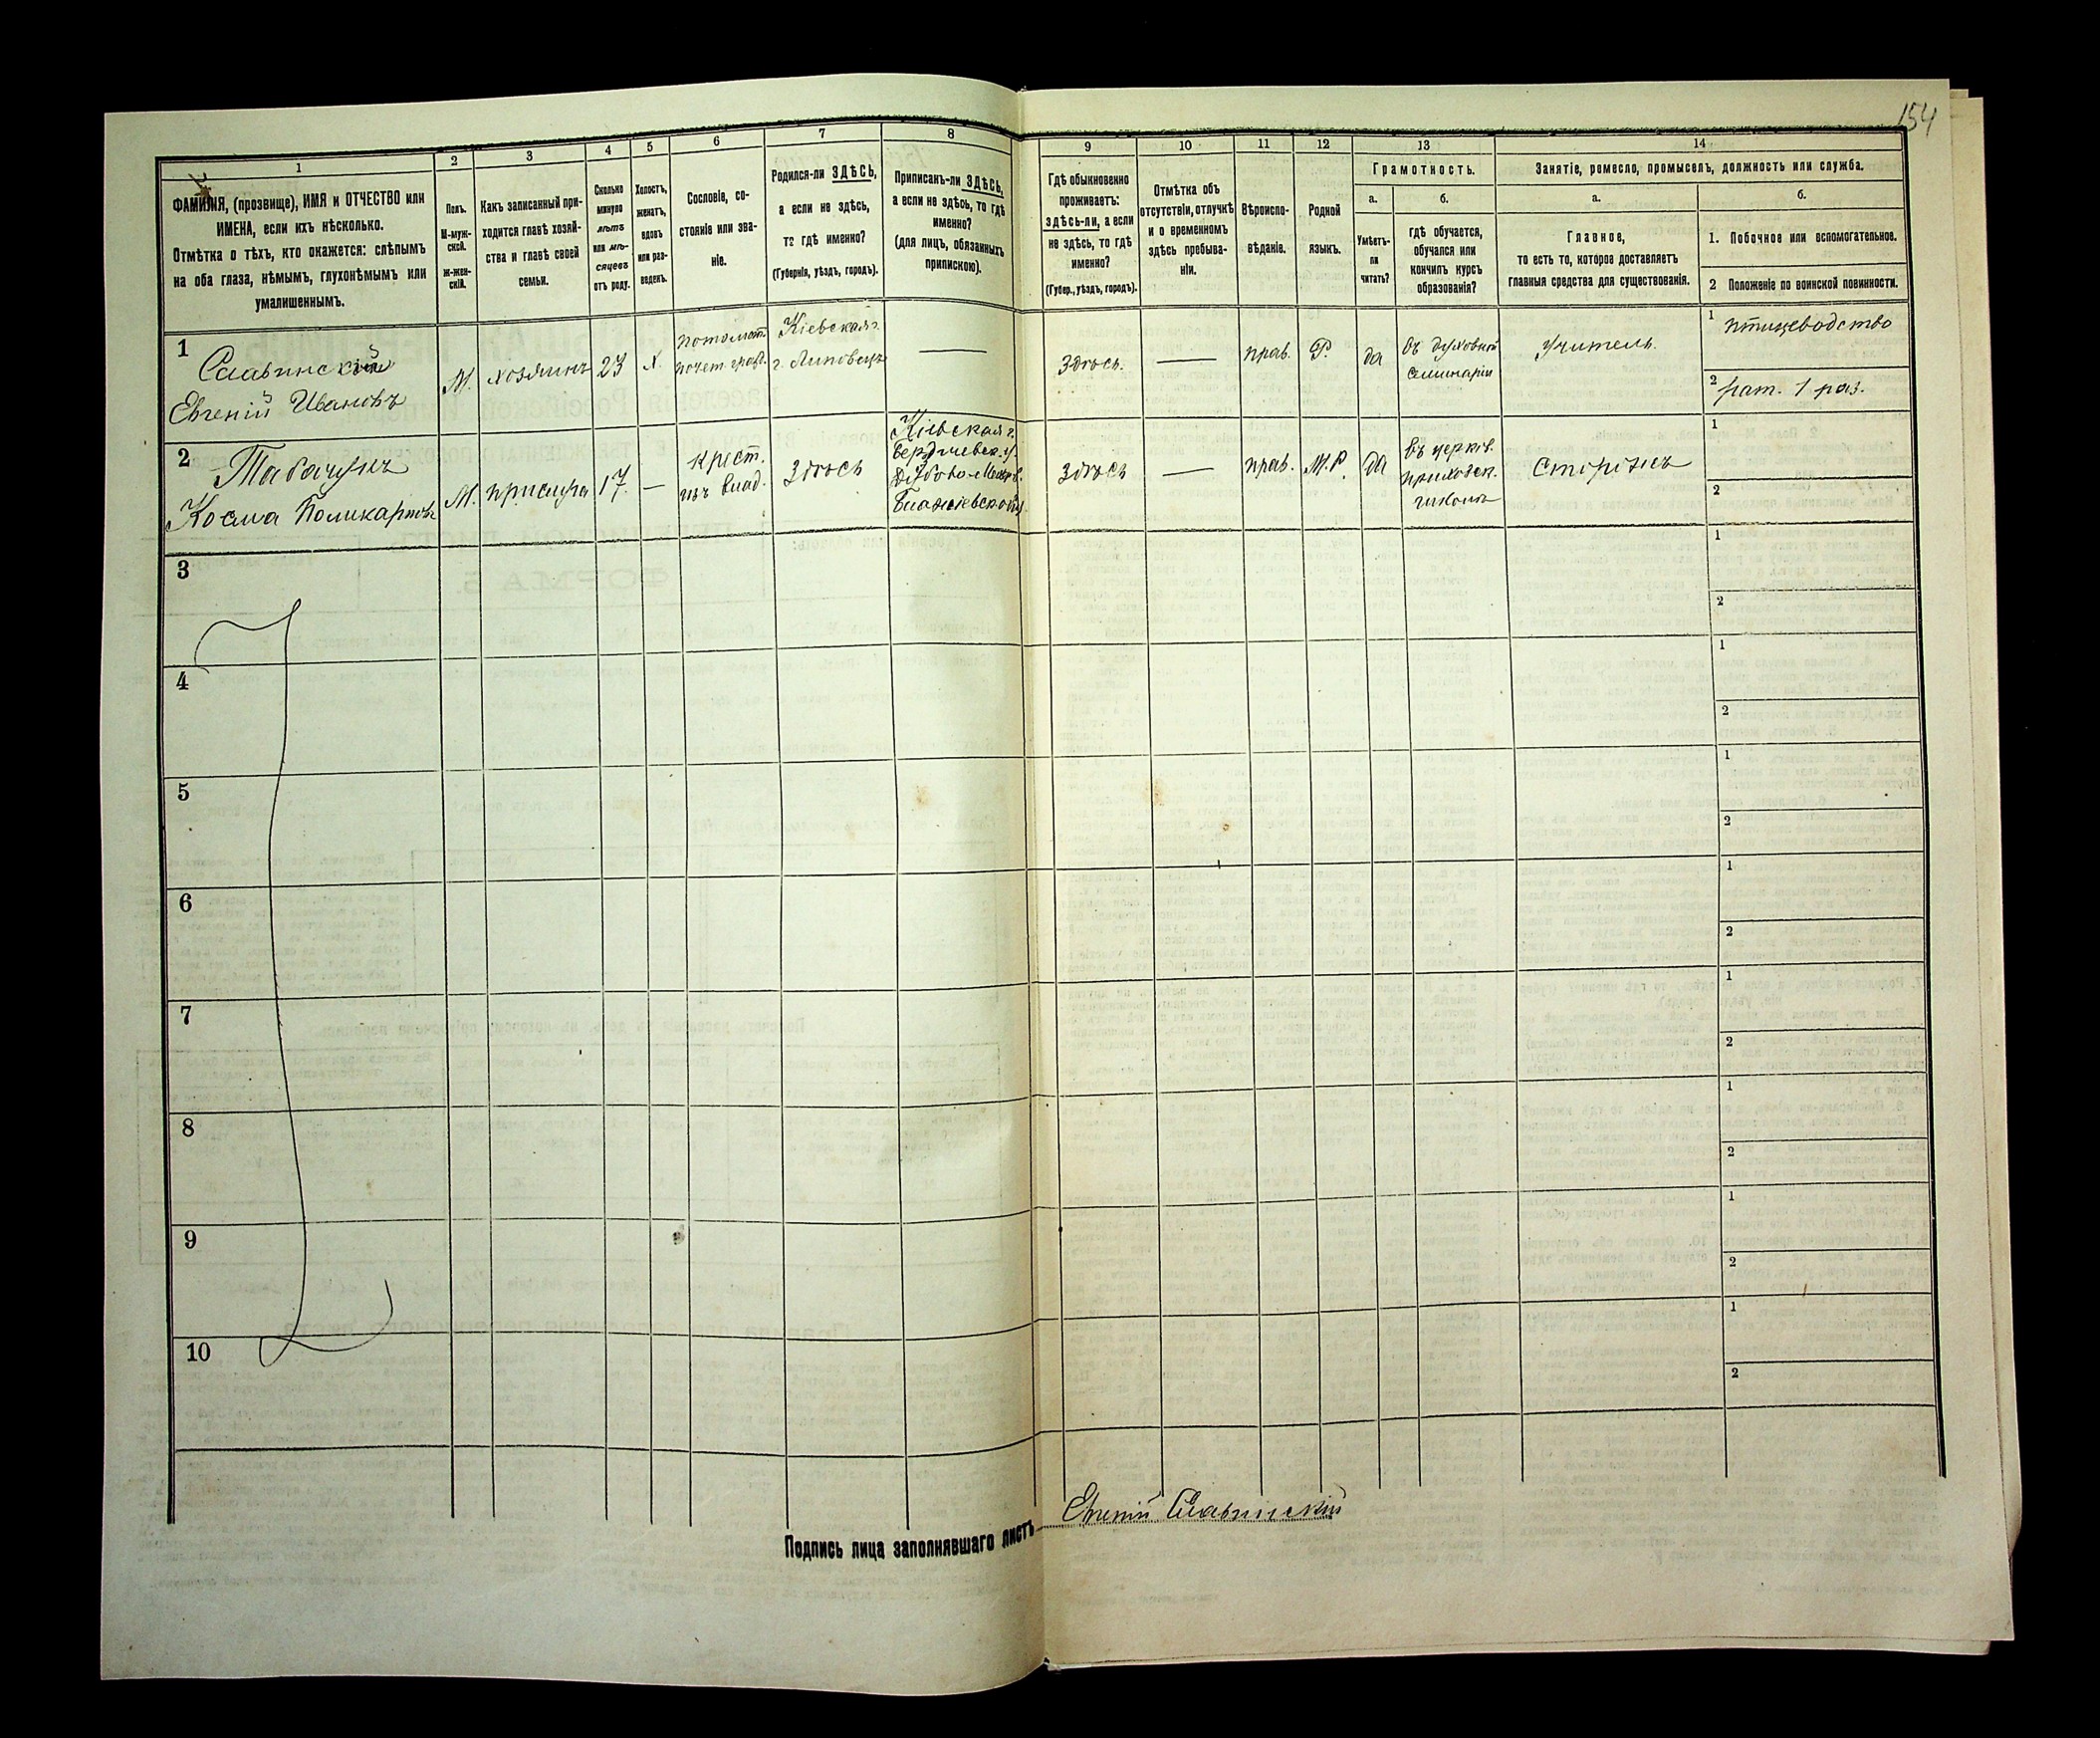 154
1
ФАМИЛІЯ, (прозвище), ИМЯ и ОТЧЕСТВО или
ИМЕНА, если ихъ нѣсколько.
Отмѣтка о тѣхъ, кто окажется: слѣпымъ
на оба глаза, нѣмымъ, глухонѣмымъ или
умалишеннымъ.
2
Полъ.
М-муж-
ской.
Ж-жен-
скій.
3
Какъ записанный при-
ходится главѣ хозяй-
ства и главѣ своей
семьи.
4
Сколько
минуло
лѣтъ
или мѣ-
сяцевъ
отъ роду.
5
Холостъ,
женатъ,
вдовъ
или раз-
веденъ.
6
Сословіе, со-
стояніе или зва-
ніе.
7
Родился-ли ЗДѢСЬ,
а если не здѣсь,
то гдѣ именно?
(Губернія, уѣздъ, городъ).
8
Приписанъ-ли ЗДѢСЬ,
а если не здѣсь, то гдѣ
именно?
(для лицъ, обязанныхъ
припискою).
9
Гдѣ обыкновенно
проживаетъ:
ЗДѢСЬ-ли, а если
не здѣсь, то гдѣ
именно?
(Губер., уѣздъ, городъ).
10
Отмѣтка объ
отсутствіи, отлучкѣ
и о временномъ
здѣсь пребыва-
ніи.
11
Вѣроиспо-
вѣданіе.
12
Родной
языкъ.
13
Грамотность.
а.
Умѣетъ-
ли
читать?
б.
гдѣ обучается,
обучался или
кончилъ курсъ
образованія?
14
Занятіе, ремесло, промыселъ, должность или служба.
а.
Главное,
то есть то, которое доставляетъ
главныя средства для существованія.
б.
1. Побочное или вспомогательное.
2 Положеніе по воинской повинности.
1
Славинскій
Евгеній Ивановъ
М.
хозяинъ
23
Х.
потомст.
почет. гражд.
Кіевская г.
г. Липовецъ
—
Здѣсь.
—
прав.
Р.
да
въ духовной
семинаріи
Учитель.
1 птицеводство
2 рат. 1 раз.
2
Табачукъ
Косма Поликарповъ
М.
прислуга
17.
—
крест.
изъ влад.
Здѣсь
Кіевская г.
Бердичевск. у.
Здѣсь
—
прав.
М.Р.
да
въ церков.
приходск.
школѣ
Сторожъ
1
2
3
1
2
4
1
2
5
1
2
6
1
2
7
1
2
8
1
2
9
1
2
10
1
2
Подпись лица заполнявшаго листъ
Евгеній Славинскій